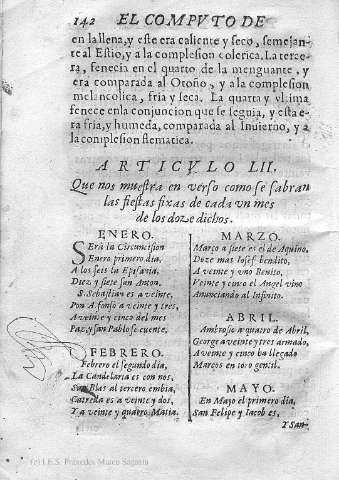 142 EL COMPVTO DE
en la llena, y este era caliente y seco, semejan-
te al Estio, y a la complesion colerica. La terce-
ra, fenecia en el quarto de la menguante, y
era comparada al Otoño, y a la complesion
melancolica, fria y seca. La quarta y vltima
fenece en la conjuncion que se seguia, y esta e-
ra fria, y humeda, comparada al Inuierno, y a
la complesion flematica.
ARTICVLO LII.
Que nos muestra en verso como se sabran
las fiestas fixas de cada vn mes
de los doze dichos.
ENERO.
SErà la Circuncision
Enero primero dia,
A los seis la Epifania,
Diez y siete san Anton.
S. Sebastian es a veinte,
Pon A fonso a veinte y tres,
A veinte y cinco del mes
Paz, y san Pablo se cuente.
FEBRERO.
Febrero el segundo dia,
La Candelaria es con nos,
San Blas al tercero embia,
Catreda es a veinte y dos,
Y a veinte y quatro Matia.
MARZO.
Março a siete es el de Aquino,
Doze mas Iosef bendito,
A veinte y vno Benito,
Veinte y cinco el Angel vino
Anunciando al Infinito.
ABRIL.
Ambrosio a quatro de Abril,
George a veinte y tres armado,
A veinte y cinco ha llegado
Marcos en toro gentil.
MAYO.
En Mayo el primero dia,
San Felipe y Iacob es,
Y San-
(c) I.E.S. Práxedes Mateo Sagasta